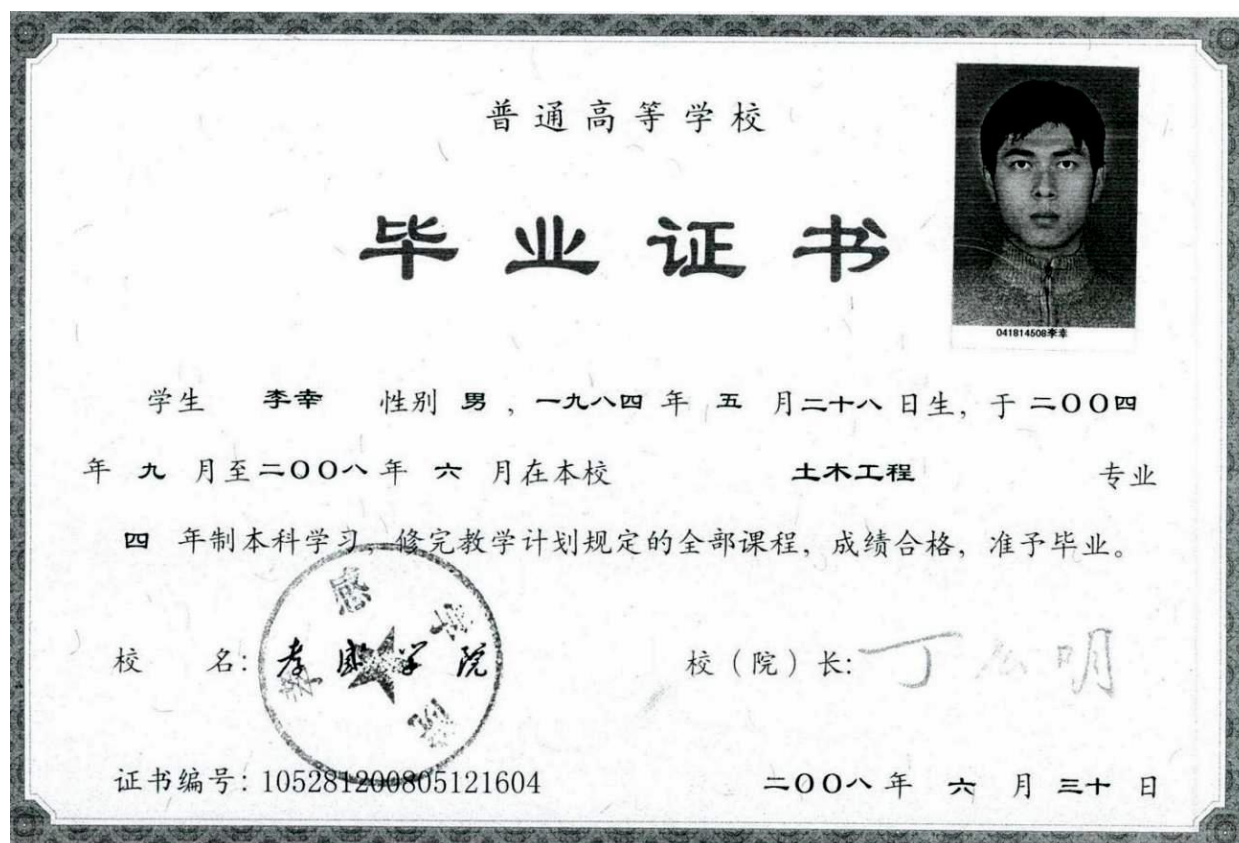 普通高等学校
毕业证书
041814508李幸
学生 李幸 性别 男 ，一九八四 年 五 月二十八 日生，于 二〇〇四
年 九 月至二〇〇八 年 六 月在本校 土木工程 专业
四 年制本科学习，修完教学计划规定的全部课程，成绩合格，准予毕业。
孝感学院
校 名：孝感学院
校（院）长：丁 明
证书编号：105281200805121604
二〇〇八 年 六 月 三十 日